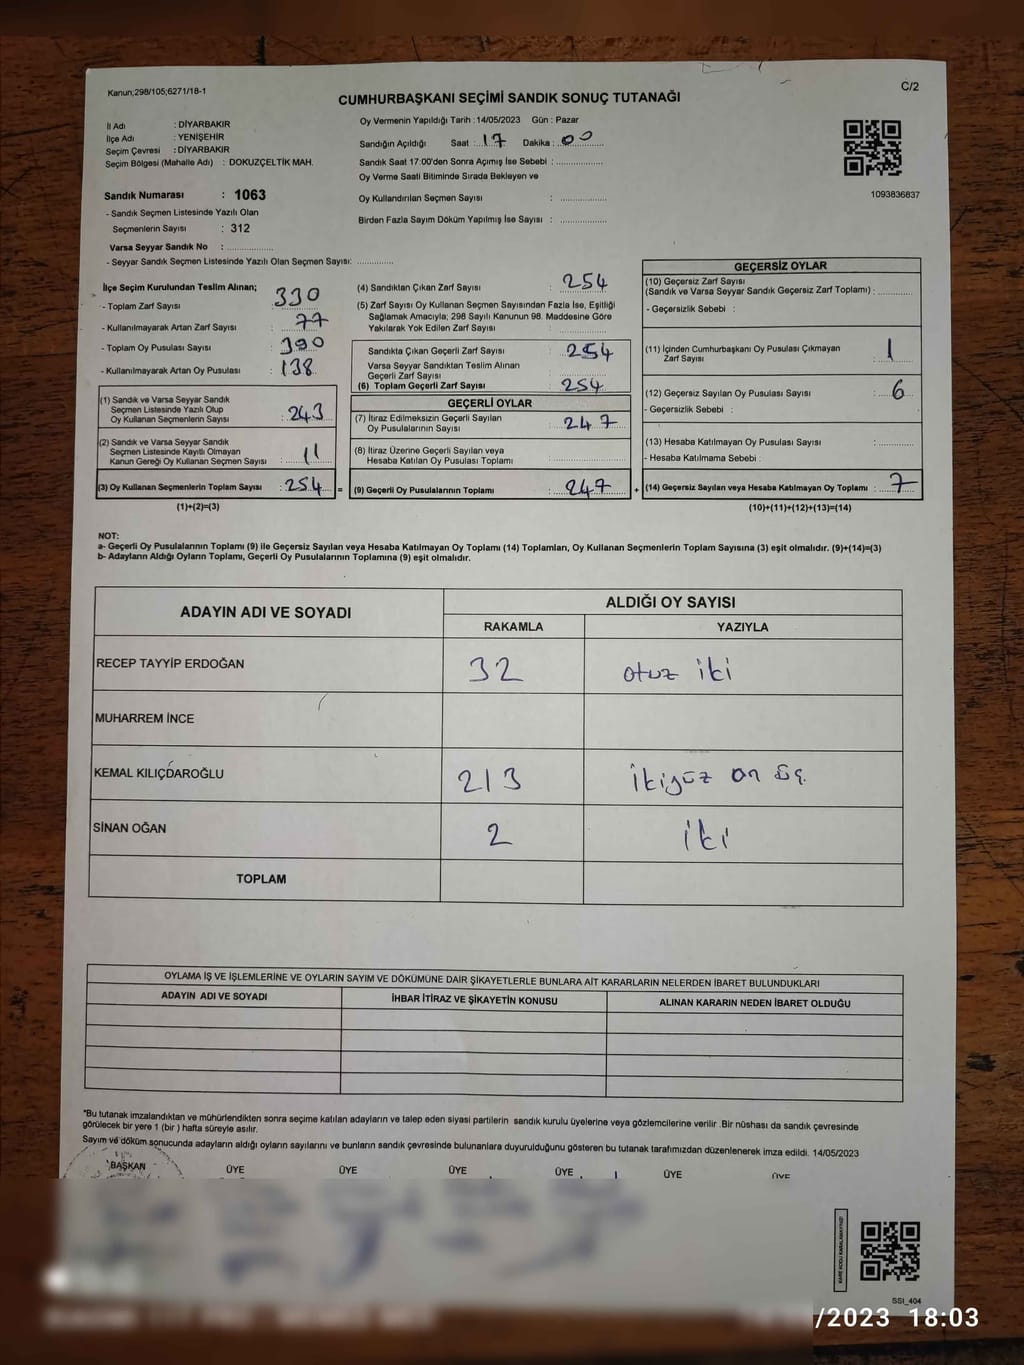 Kanun;298/105;6271/18-1
C/2
CUMHURBAŞKANI SEÇİMİ SANDIK SONUÇ TUTANAĞI
İl Adı : DİYARBAKIR
İlçe Adı : YENİŞEHİR
Seçim Çevresi : DİYARBAKIR
Seçim Bölgesi (Mahalle Adı) : DOKUZÇELTİK MAH.
Oy Vermenin Yapıldığı Tarih : 14/05/2023 Gün : Pazar
Sandığın Açıldığı Saat : 17 Dakika : 00
Sandık Saat 17:00'den Sonra Açımış İse Sebebi : ..............
Oy Verme Saati Bitiminde Sırada Bekleyen ve
Oy Kullandırılan Seçmen Sayısı : ..............
Birden Fazla Sayım Döküm Yapılmış İse Sayısı : ..............
1093836837
Sandık Numarası : 1063
- Sandık Seçmen Listesinde Yazılı Olan
Seçmenlerin Sayısı : 312
Varsa Seyyar Sandık No : ..............
- Seyyar Sandık Seçmen Listesinde Yazılı Olan Seçmen Sayısı: ..............
İlçe Seçim Kurulundan Teslim Alınan;
- Toplam Zarf Sayısı : 330
- Kullanılmayarak Artan Zarf Sayısı : 77
- Toplam Oy Pusulası Sayısı : 390
- Kullanılmayarak Artan Oy Pusulası : 138
(1) Sandık ve Varsa Seyyar Sandık
Seçmen Listesinde Yazılı Olup
Oy Kullanan Seçmenlerin Sayısı : 243
(2) Sandık ve Varsa Seyyar Sandık
Seçmen Listesinde Kayıtlı Olmayan
Kanun Gereği Oy Kullanan Seçmen Sayısı : 11
(3) Oy Kullanan Seçmenlerin Toplam Sayısı : 254 =
(1)+(2)=(3)
(4) Sandıktan Çıkan Zarf Sayısı : 254
(5) Zarf Sayısı Oy Kullanan Seçmen Sayısından Fazla İse, Eşitliği
Sağlamak Amacıyla; 298 Sayılı Kanunun 98. Maddesine Göre
Yakılarak Yok Edilen Zarf Sayısı : ..............
Sandıkta Çıkan Geçerli Zarf Sayısı : 254
Varsa Seyyar Sandıktan Teslim Alınan
Geçerli Zarf Sayısı : ..............
(6) Toplam Geçerli Zarf Sayısı : 254
GEÇERLİ OYLAR
(7) İtiraz Edilmeksizin Geçerli Sayılan
Oy Pusulalarının Sayısı : 247
(8) İtiraz Üzerine Geçerli Sayılan veya
Hesaba Katılan Oy Pusulası Toplamı : ..............
(9) Geçerli Oy Pusulalarının Toplamı : 247 +
GEÇERSİZ OYLAR
(10) Geçersiz Zarf Sayısı
(Sandık ve Varsa Seyyar Sandık Geçersiz Zarf Toplamı) : ..............
- Geçersizlik Sebebi :
(11) İçinden Cumhurbaşkanı Oy Pusulası Çıkmayan
Zarf Sayısı : 1
(12) Geçersiz Sayılan Oy Pusulası Sayısı : 6
- Geçersizlik Sebebi :
(13) Hesaba Katılmayan Oy Pusulası Sayısı : ..............
- Hesaba Katılmama Sebebi :
(14) Geçersiz Sayılan veya Hesaba Katılmayan Oy Toplamı : 7
(10)+(11)+(12)+(13)=(14)
NOT:
a- Geçerli Oy Pusulalarının Toplamı (9) ile Geçersiz Sayılan veya Hesaba Katılmayan Oy Toplamı (14) Toplamları, Oy Kullanan Seçmenlerin Toplam Sayısına (3) eşit olmalıdır. (9)+(14)=(3)
b- Adayların Aldığı Oyların Toplamı, Geçerli Oy Pusulalarının Toplamına (9) eşit olmalıdır.
ADAYIN ADI VE SOYADI
ALDIĞI OY SAYISI
RAKAMLA YAZIYLA
RECEP TAYYİP ERDOĞAN 32 otuz iki
MUHARREM İNCE
KEMAL KILIÇDAROĞLU 213 ikiyüz on üç
SİNAN OĞAN 2 iki
TOPLAM
OYLAMA İŞ VE İŞLEMLERİNE VE OYLARIN SAYIM VE DÖKÜMÜNE DAİR ŞİKAYETLERLE BUNLARA AİT KARARLARIN NELERDEN İBARET BULUNDUKLARI
ADAYIN ADI VE SOYADI İHBAR İTİRAZ VE ŞİKAYETİN KONUSU ALINAN KARARIN NEDEN İBARET OLDUĞU
*Bu tutanak imzalandıktan ve mühürlendikten sonra seçime katılan adayların ve talep eden siyasi partilerin sandık kurulu üyelerine veya gözlemcilerine verilir .Bir nüshası da sandık çevresinde
görülecek bir yere 1 (bir ) hafta süreyle asılır.
Sayım ve döküm sonucunda adayların aldığı oyların sayılarını ve bunların sandık çevresinde bulunanlara duyurulduğunu gösteren bu tutanak tarafımızdan düzenlenerek imza edildi. 14/05/2023
BAŞKAN ÜYE ÜYE ÜYE ÜYE ÜYE ÜYE
SSI_404
/2023 18:03